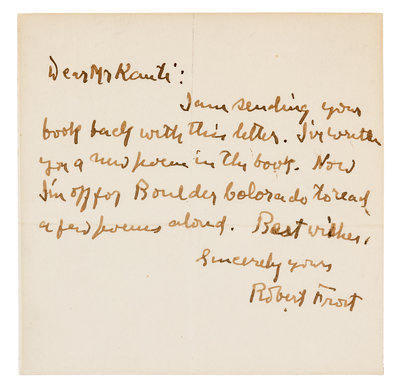 Dear Mr Kauti:
I am sending your
book back with this letter. I've written
you a new poem in the book. Now
I'm off for Boulder Colorado to read
a few poems aloud. Best wishes.
Sincerely yours
Robert Frost